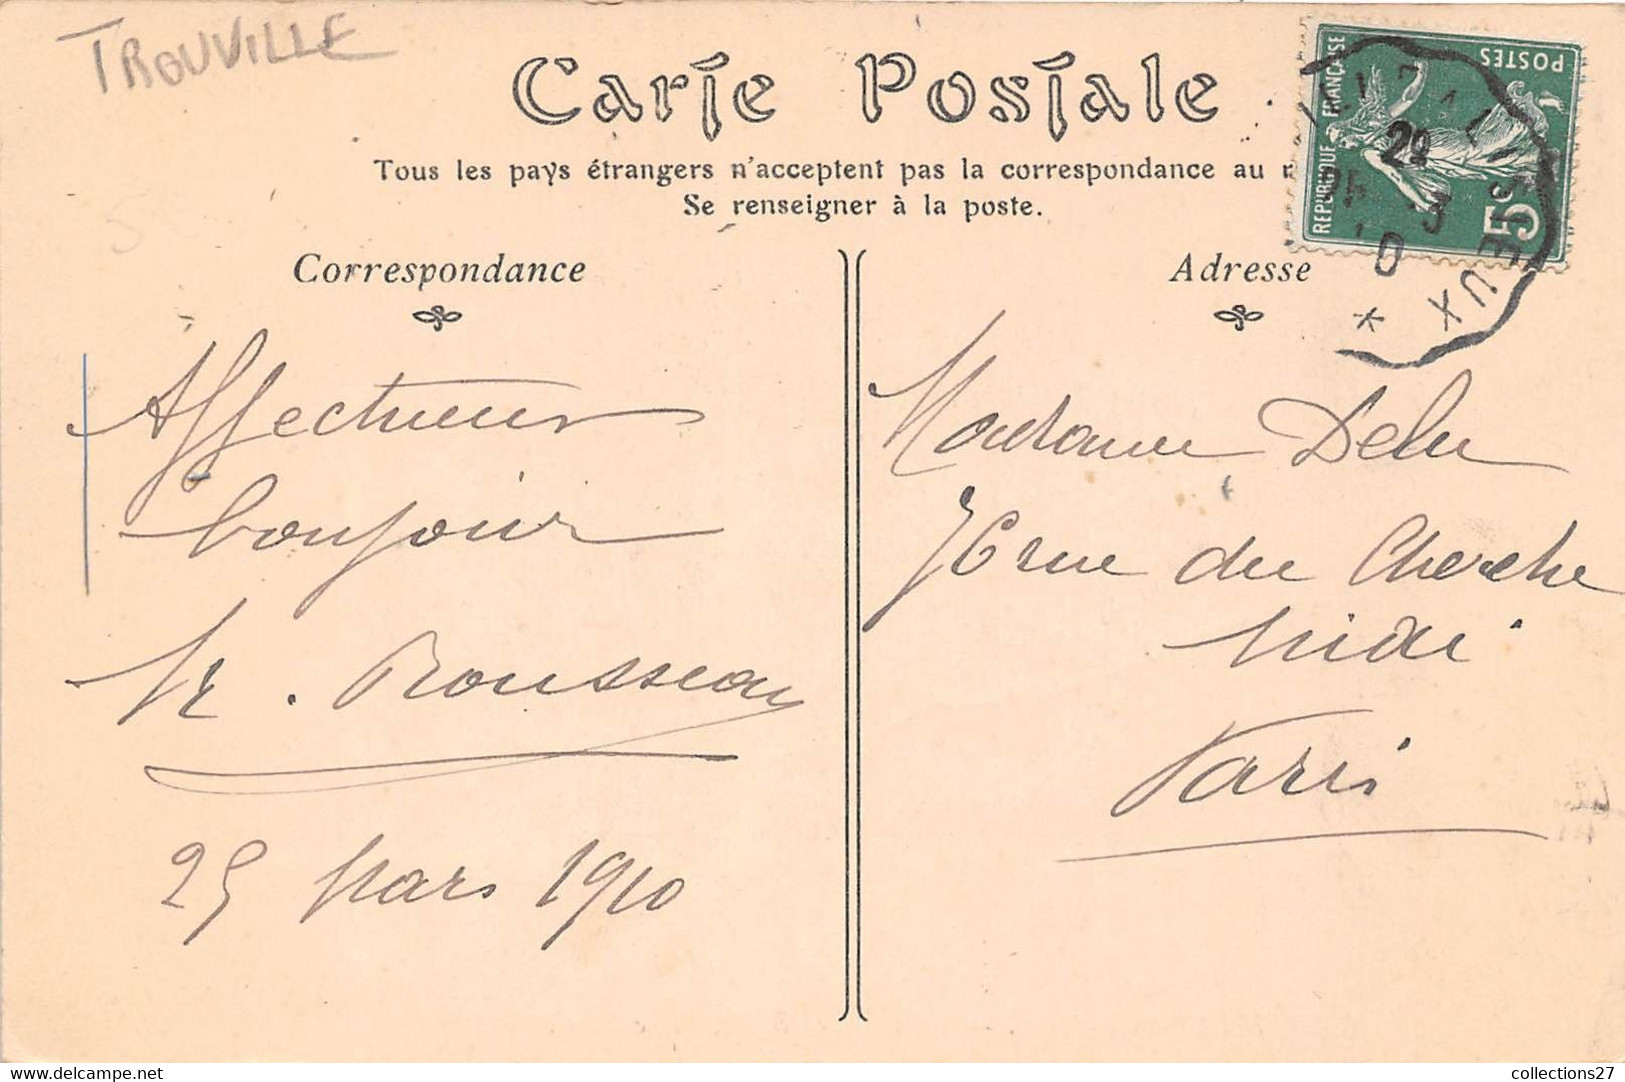 TROUVILLE
Carte Postale
Tous les pays étrangers n'acceptent pas la correspondance au
Se renseigner à la poste.
REPUBLIQUE FRANÇAISE
POSTES
5
29
25
3
10
LISIEUX
*
Correspondance
Affectueux
bonjour
Rousseau
25 Mars 1910
Adresse
Madame
76 rue du Cherche
Midi
Paris
delcampe.net
collections27